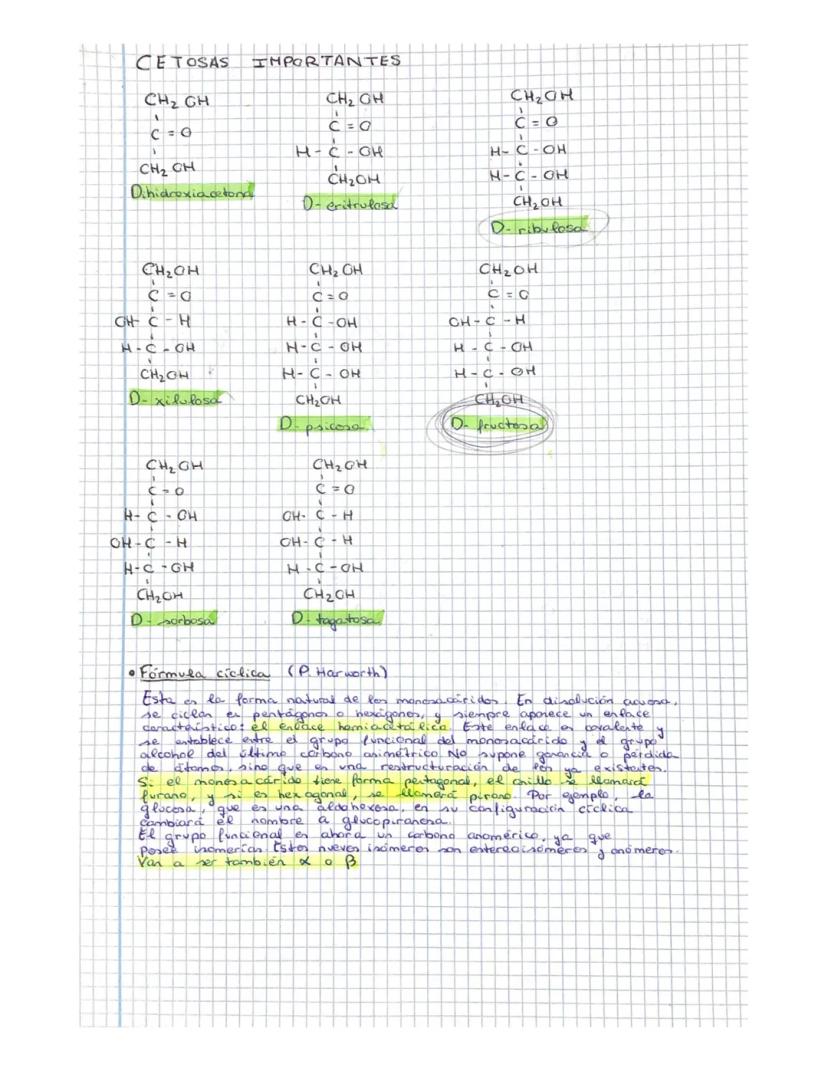 CETOSAS IMPORTANTES
CH2 OH
C = O
CH2 OH
Dihidroxiacetona
CH2 OH
C = O
H - C - OH
CH2OH
D- eritrulosa
CH2OH
C = O
H - C - OH
H - C - OH
CH2OH
D- ribulosa
CH2OH
C = O
OH - C - H
H - C - OH
CH2OH
D- xilulosa
CH2 OH
C = O
H - C - OH
H - C - OH
H - C - OH
CH2OH
D- psicosa
CH2OH
C = O
OH - C - H
H - C - OH
H - C - OH
CH2OH
D- fructosa
CH2 OH
C = O
H - C - OH
OH - C - H
H - C - OH
CH2OH
D- sorbosa
CH2OH
C = O
OH - C - H
OH - C - H
H - C - OH
CH2OH
D- tagatosa
• Fórmula cíclica (P. Harworth)
Esta es la forma natural de los monosacáridos. En disolución acuosa,
se ciclan es pentágonos o hexágonos, y siempre aparece un enlace
característico: el enlace hemiacetálico. Este enlace es covalente y
se establece entre el grupo funcional del monosacárido y el grupo
alcohol del último carbono asimétrico. No supone ganancia o pérdida
de átomos, sino que es una restructuración de los ya existentes.
Si el monosacárido tiene forma pentagonal, el anillo se llamará
furano, y si es hexagonal, se llamará pirano. Por ejemplo, la
glucosa, que es una aldohexosa, en su configuración cíclica
cambiará el nombre a glucopiranosa.
El grupo funcional es ahora un carbono anomérico, ya que
posee isomerías. Estos nuevos isómeros son estereoisómeros y anómeros.
Van a ser también α o β